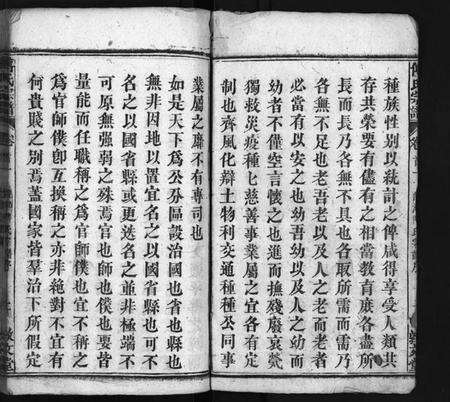 種族性別以統計之俾咸得享受人類共
存共榮要有儘有之相當教育庶各盡所
長而長乃各無不具也各取所需而需乃
各無不足也老吾老以及人之老而老者
必當有以安之也幼吾幼以及人之幼而
幼者不僅空言懷之也進而撫殘廢哀煢
獨救災疫種七慈善事業屬之宜各有定
制也齊風化辯土物利交通種種公同事
業屬之肅不有專司也
如是天下為公分區設治國也省也縣也
無非因地以置宜名之以國省縣可也不
名之以國省縣或更迭名之並非極端不
可原無強弱之殊焉官也師也僕也要皆
量能而任職稱之為官師僕也宜不稱之
為官師僕卽互換稱之亦非絕對不宜有
何貴賤之別焉蓋國家皆羣治下所假定